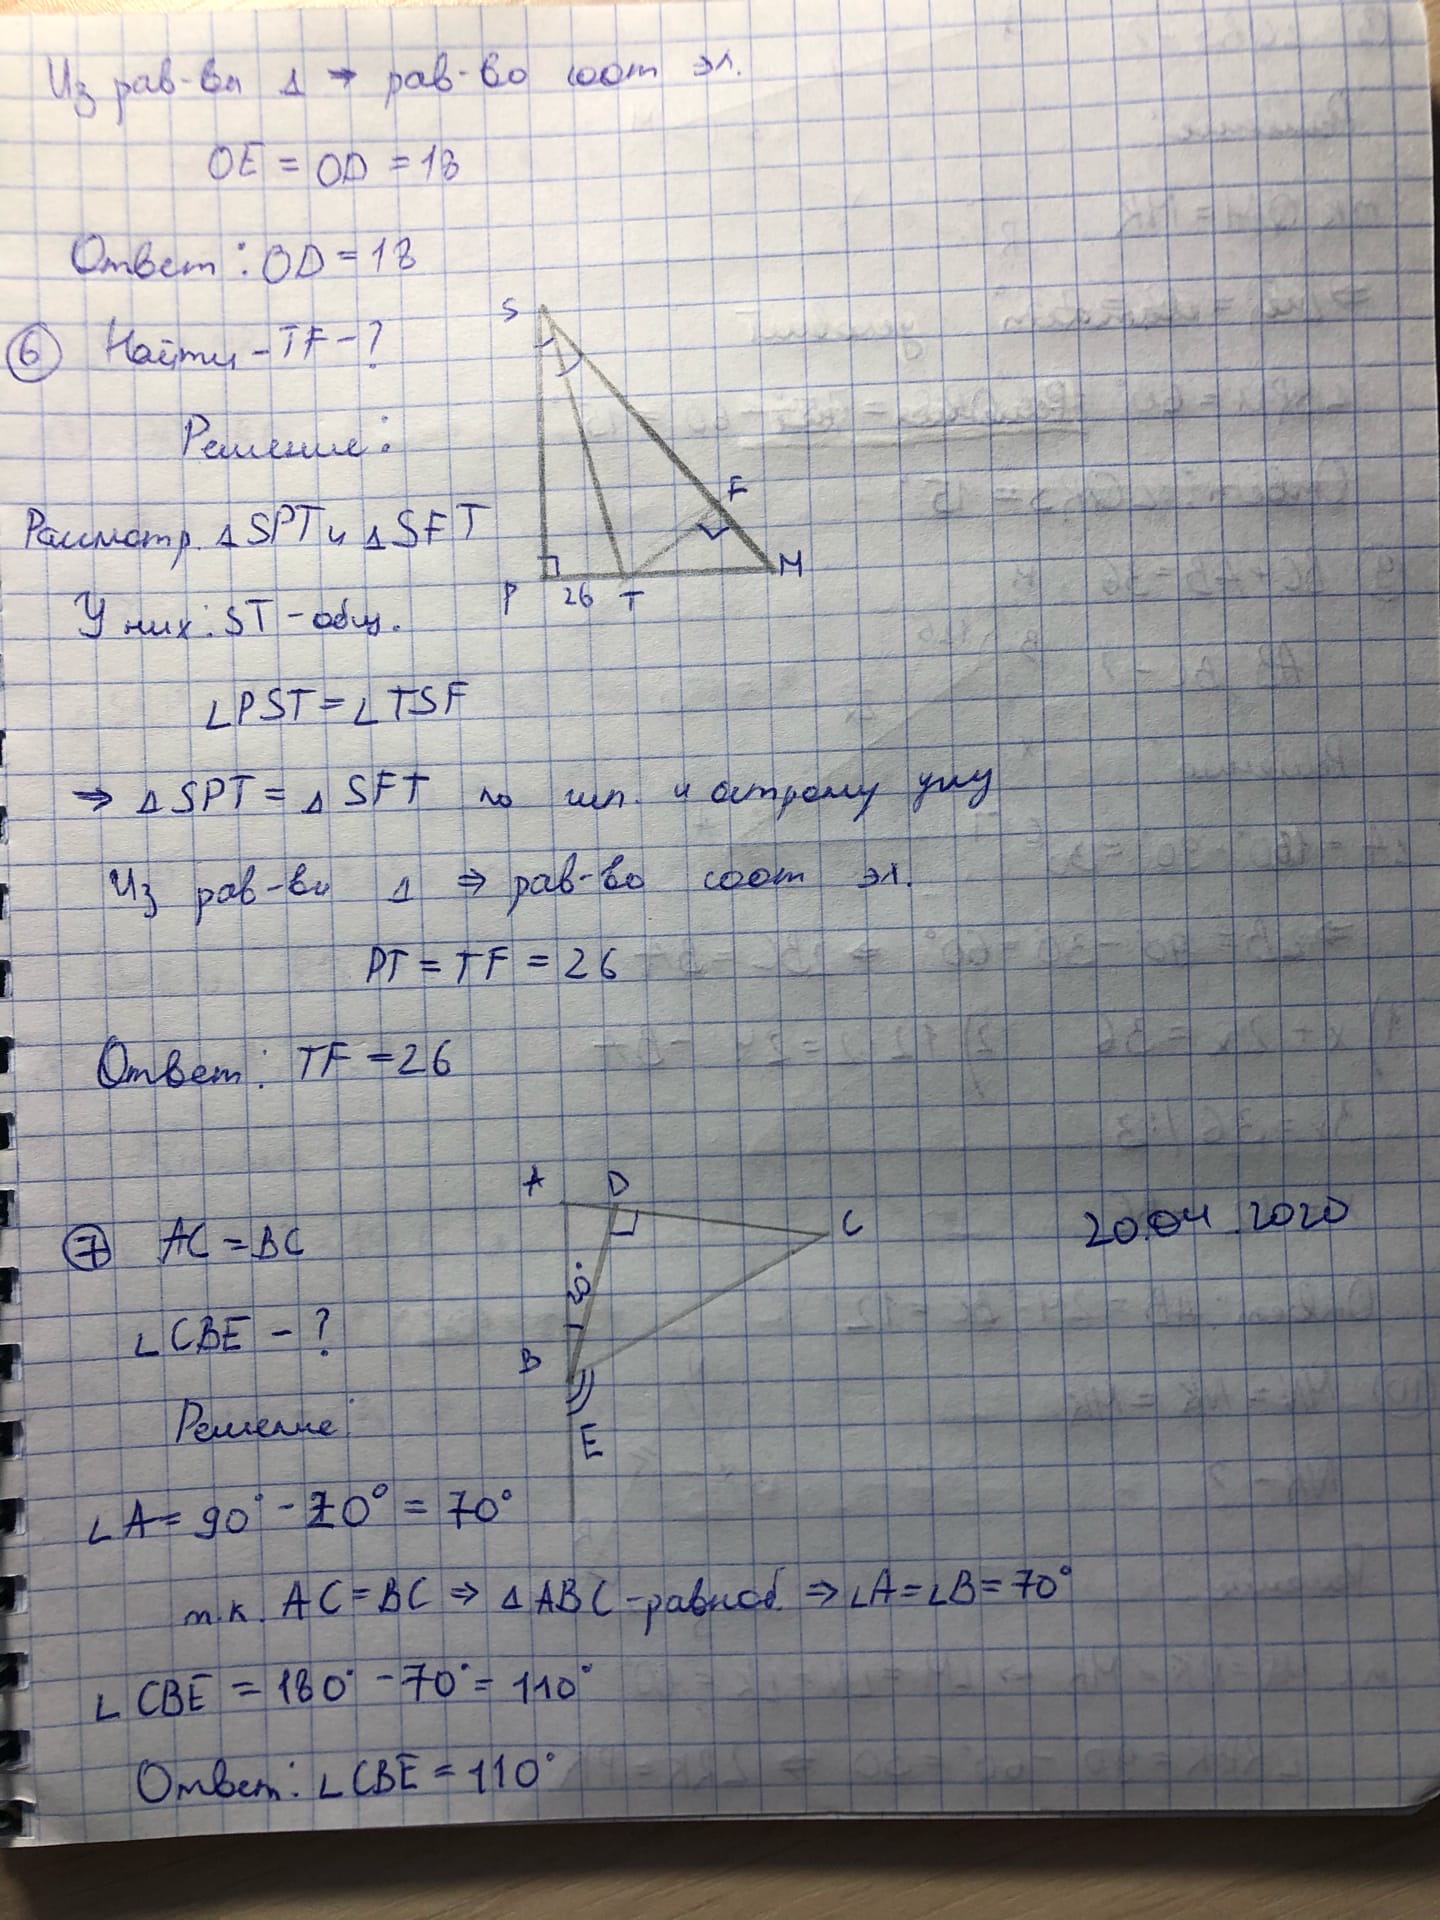 Из рав-ва Δ ⇒ рав-во соот эл.
OE = OD = 18
Ответ: OD = 18
⑥ Найти - TF - ?
Решение:
Рассмотр. ΔSPT и ΔSFT
У них: ST - общ.
∠PST = ∠TSF
⇒ ΔSPT = ΔSFT по гип. и острому углу
Из рав-ва Δ ⇒ рав-во соот эл.
PT = TF = 26
Ответ: TF = 26
S
F
P 26 T M
⑦ AC = BC
∠CBE - ?
Решение:
∠A = 90° - 20° = 70°
т.к. AC = BC ⇒ ΔABC - равноб. ⇒ ∠A = ∠B = 70°
∠CBE = 180° - 70° = 110°
Ответ: ∠CBE = 110°
A D
C
20°
B
E
20.04.2020